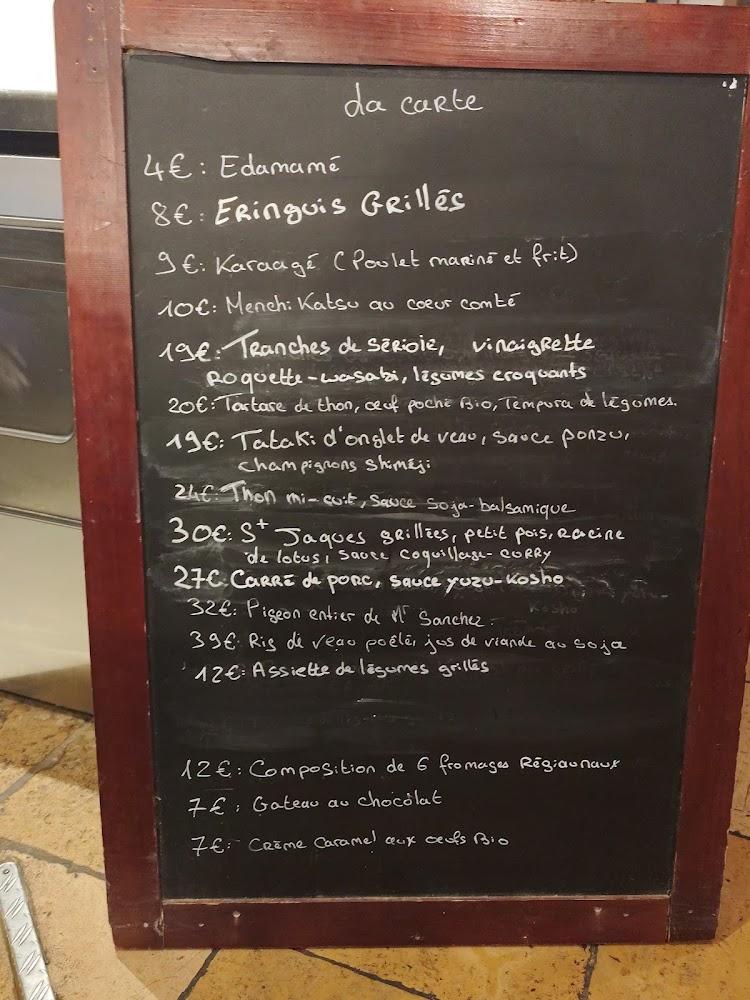 La carte
4€: Edamamé
8€: Eringuis Grillés
9€: Karaagé (Poulet mariné et frit)
10€: Menchi Katsu au coeur comté
19€: Tranches de sériole, vinaigrette
Roquette-wasabi, légumes croquants
20€: Tartare de thon, œuf poché Bio, Tempura de légumes.
19€: Tataki d'onglet de veau, sauce ponzu,
champignons shiméji
24€: Thon mi-cuit, sauce soja-balsamique
30€: S+ Jaques grillées, petit pois, racine
de lotus, sauce coquillage-curry
27€: Carré de porc, sauce yuzu-kosho
32€: Pigeon entier de Mr Sanchez.
39€: Ris de veau poêlé, jus de viande au soja
12€: Assiette de légumes grillés
12€: Composition de 6 fromages Régiaunaux
7€: Gateau au chocolat
7€: Crème Caramel aux œufs Bio